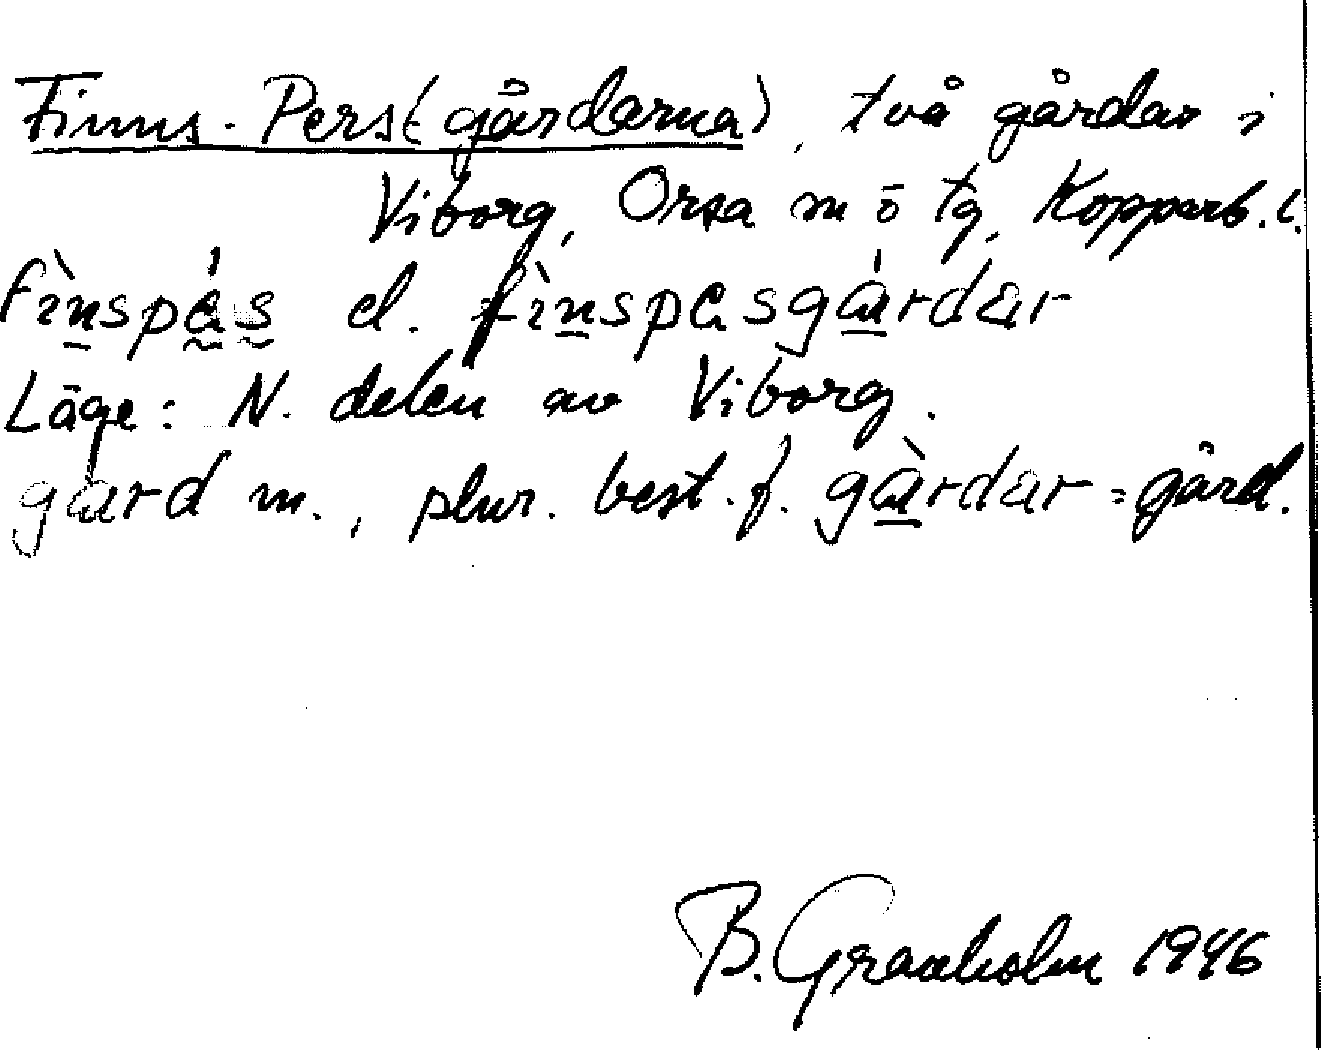 Finns-Pers(gårdarna), två gårdar i
Viborg, Orsa sn ö tg, Kopparb. l.
fìnspás el. fìnspasgárdar
Läge: N. delen av Viborg.
gard m., plur. best. f. gàrdar = gård.
B. Granholm 1946